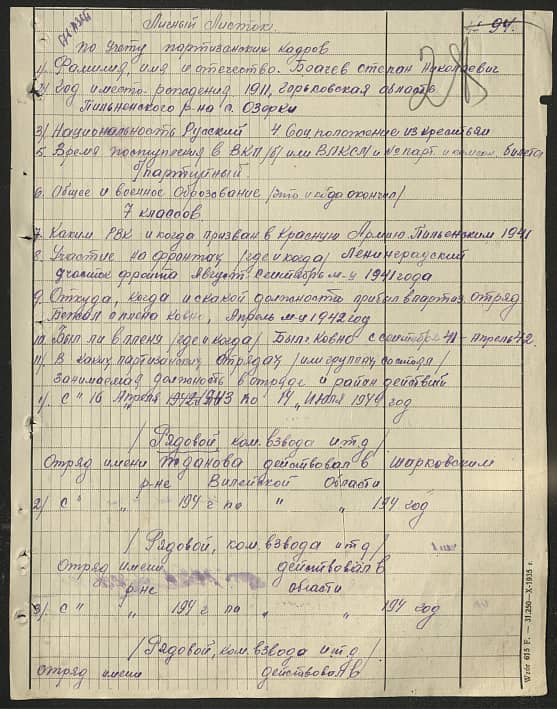 94.
28
Личный Листок.
по учету партизанских кадров
1) Фамилия, имя и отчество. Боачев степан Николаевич
2) Год и место-рождения 1911, Горьковская область
Пильненского р-на с. Озерки
3) Национальность Русский 4 Соц положение из крестьян
5. Время поступления в ВКП/б/ или ВЛКСМ и № парт. и комсом. билета
б/партийный.
6. Общее и военное образование /что и когда окончил/
7 классов
7. Каким РВК и когда призван в Красную Армию. Пильненским 1941
8. Участие на фронтах /где и когда/ Ленинградский
участок фронта Август, сентябрь м-ц 1941 года
9. Откуда, когда и с какой должности прибыл в партиз. отряд
Бежал с плена Ковно, Апрель м-ц 1942 год
10. Был ли в плену /где и когда/ Был: Ковно с сентября 41 - апрель 42.
11) В каких партизанских отрядах /или группах состоял/
занимаемая должность в отряде и район действий
1) с "16 Апреля 1943 по 14 " Июля 1944 год
/ Рядовой, ком. взвода и т.д /
Отряд имени Жданова действовал в Шарковским
р-не Вилейской области
2) с " " 194 г по " " 194 год
/ Рядовой, ком. взвода и т.д /
Отряд имени действовал в
р-не области
3) с " " 194 г по " 194 год
/ Рядовой, ком. взвода и т.д /
отряд имени действовал в
Wzór 615 F. — 31.250—X-1935 r.